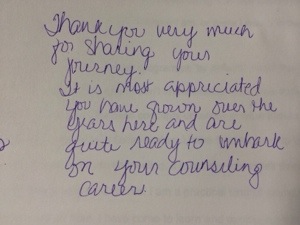 Thank you very much
for sharing your
journey.
It is most appreciated
you have grown over the
years here and are
quite ready to umbark
on your counseling
career.